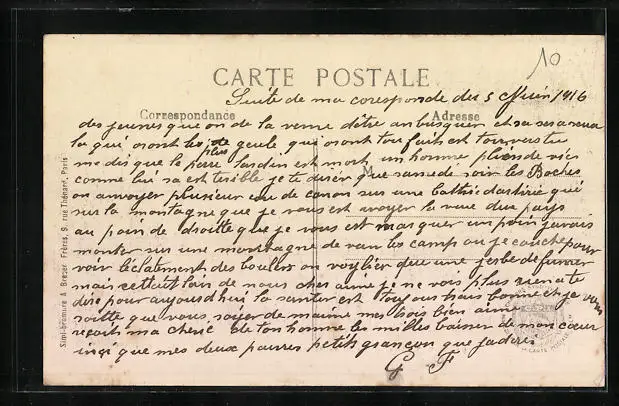 10
CARTE POSTALE
Suite de ma coresponde du 5 Juin 1916
Correspondance Adresse
des jeunes qui on de la veine d'être anbusquer et sa sera ceux
la qui oront le plus de geule, qui oront tou fait est tou vers tu
me dis que le père Jardin est mort un homme plien de vies
comme lui sa est terible je te direr que samedi soir les Boches
on anvoyer plusieur cou de canon sur une
sur la montagne que je vous est avoyer la vue du pays
au poin de droitte que je vous est marquer un poin j'avais
monter sur une montagne de van tes camp ou je couche pour
voir l'éclatement des boulers on voyier que une jerbe de fumer
mais cettait loin de nous cher amie je ne vois plus rien a te
dire pour aujourd'hui la santer est toujours trais bonne et je veux
soitte que vous soyer de maime mes trois bien aimé
reçois ma cherie de ton homme les milles baiser de mon coeur
insi que mes deux pauvres petits garcon que j'adore
G F
Simi-bromure A. Breger Frères, 9, rue Thénard, Paris
LA CARTE POSTALE